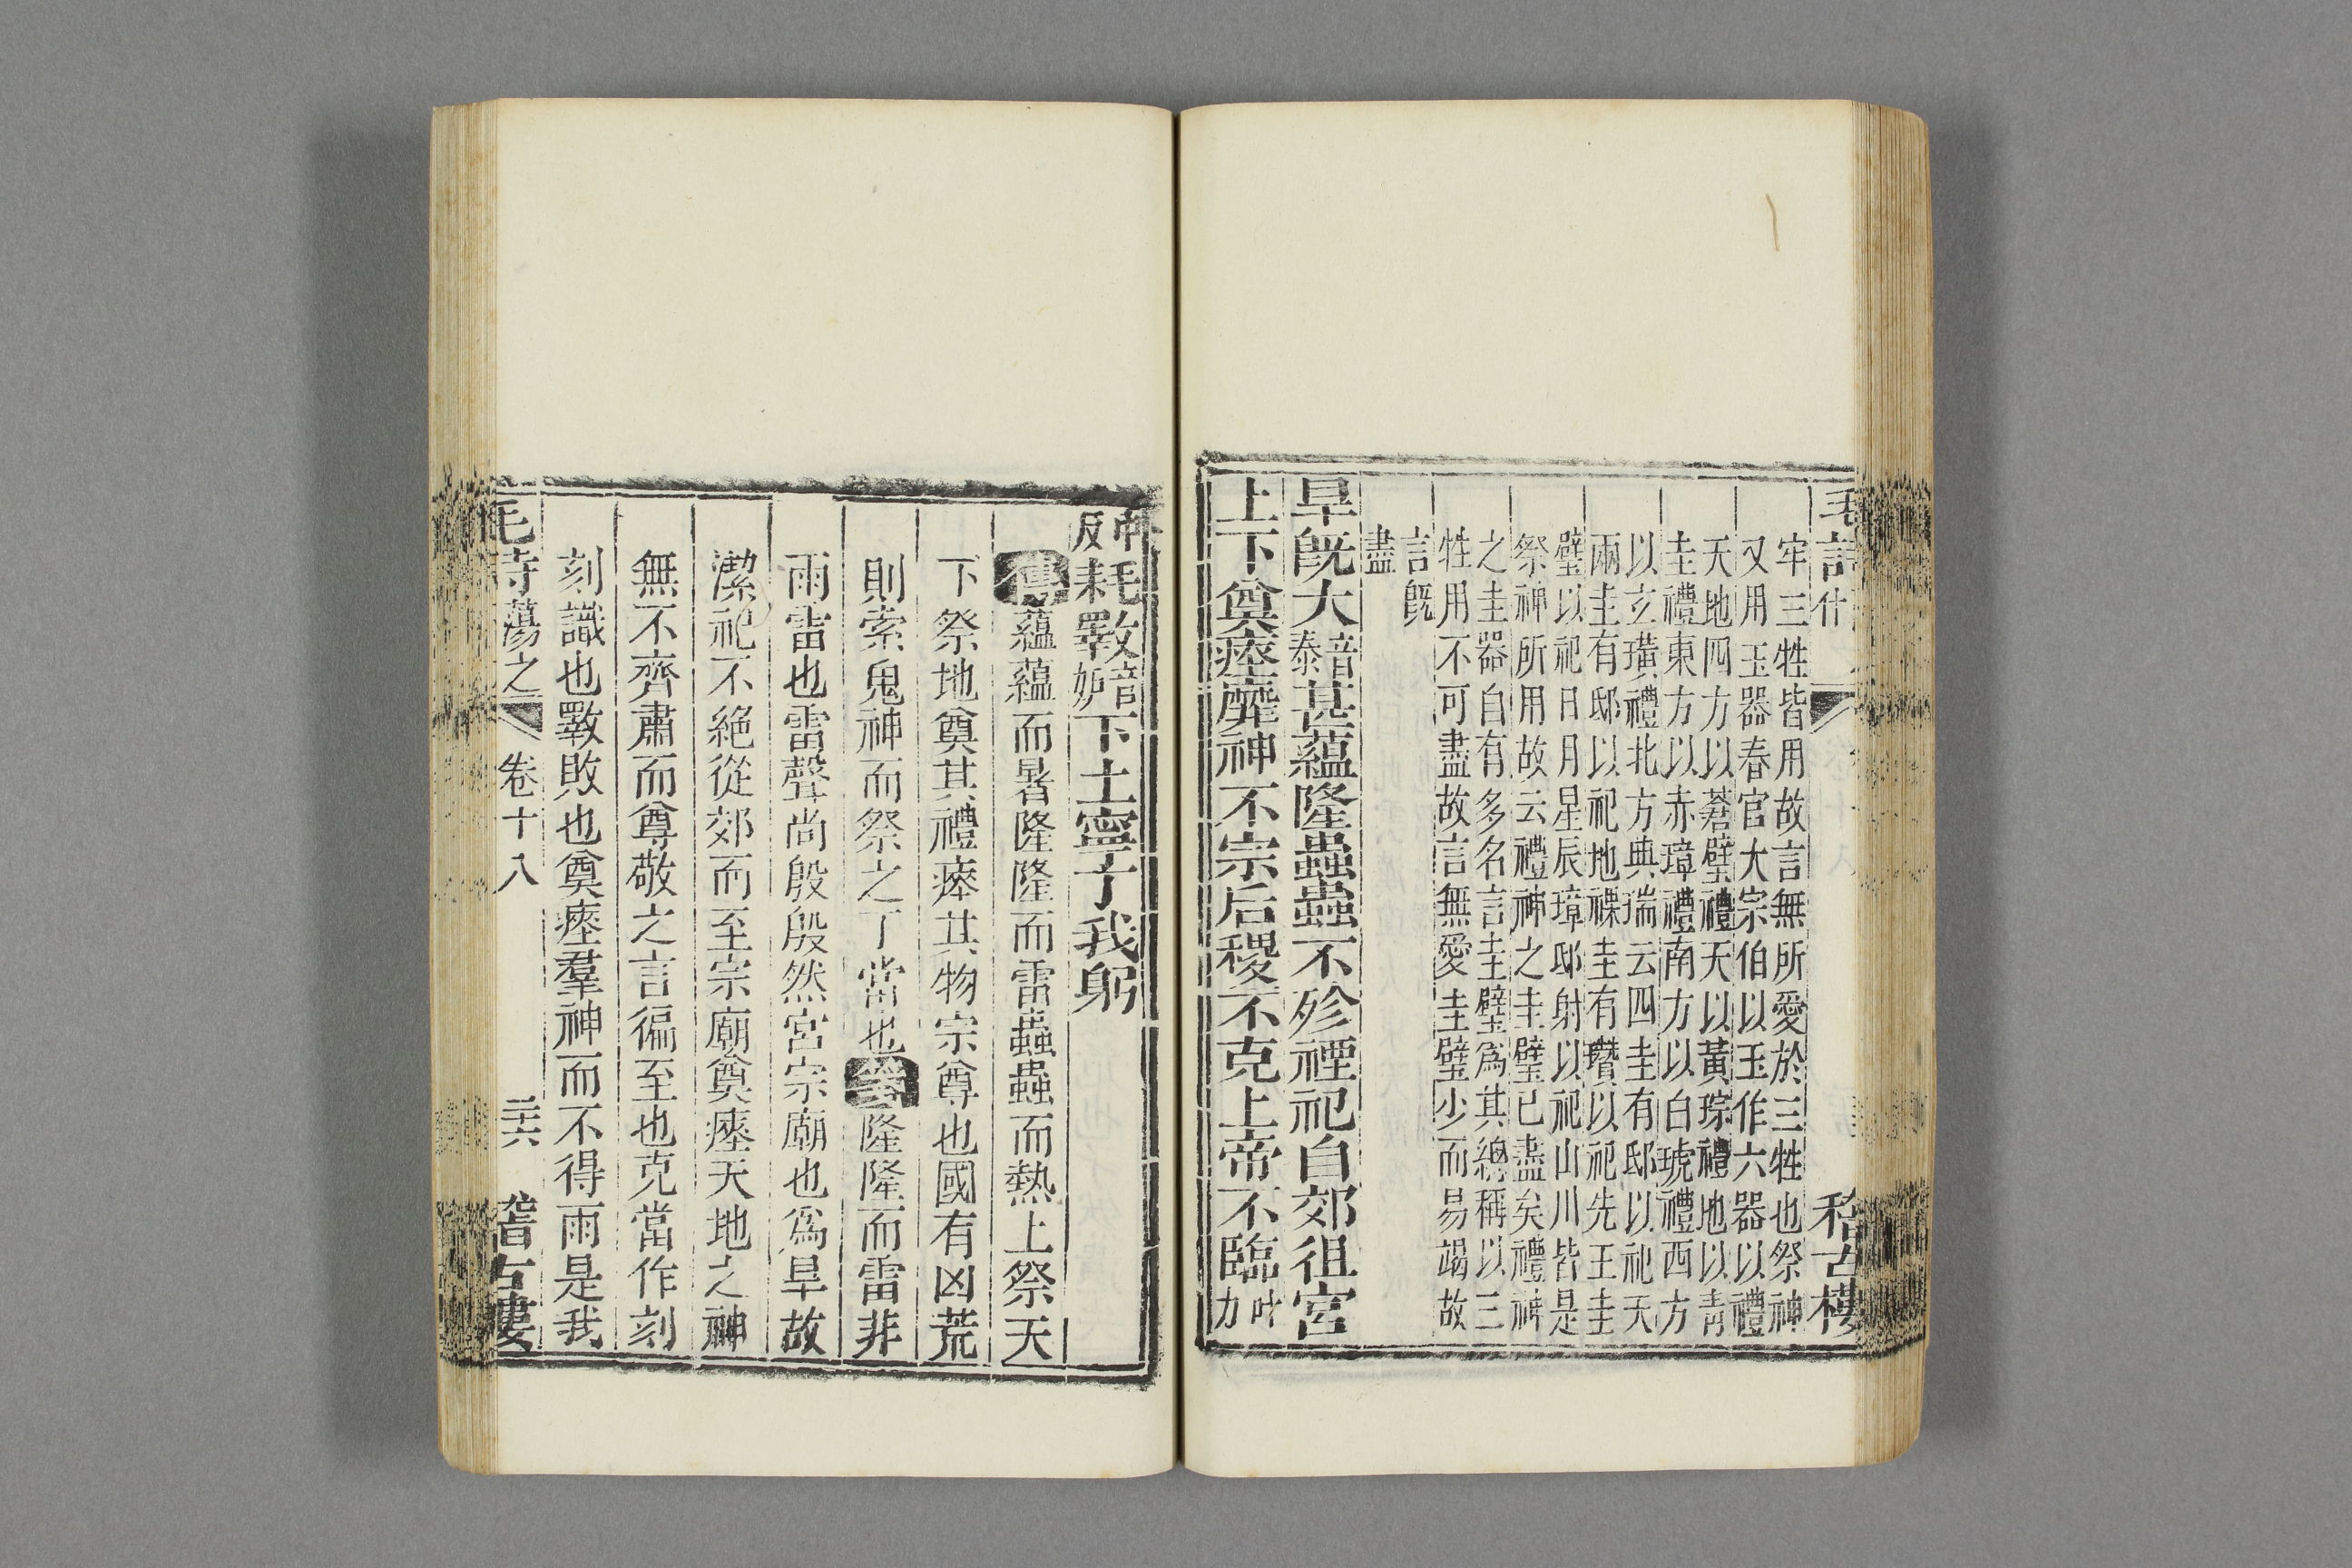 牢三牲皆用故言無所愛於三牲也祭神
又用玉器春官大宗伯以玉作六器以禮
天地四方以蒼璧禮天以黃琮禮地以青
圭禮東方以赤璋禮南方以白琥禮西方
以玄璜禮北方典瑞云四圭有邸以祀天
兩圭有邸以祀地祼圭有瓚以祀先王圭
璧以祀日月星辰璋邸射以祀山川皆是
祭神所用故云禮神之圭璧已盡矣禮神
之圭器自有多名言圭璧爲其總稱以三
牲用不可盡故言無愛圭璧少而易竭故
言旣
盡
旱旣大音泰甚蘊隆蟲蟲不殄禋祀自郊徂宮
上下奠瘞靡神不宗后稷不克上帝不臨叶力
中反耗斁音妒下土寧丁我躬
傳蘊蘊而暑隆隆而雷蟲蟲而熱上祭天
下祭地奠其禮瘞其物宗尊也國有凶荒
則索鬼神而祭之丁當也箋隆隆而雷非
雨雷也雷聲尚殷殷然宮宗廟也爲旱故
潔祀不絕從郊而至宗廟奠瘞天地之神
無不齊肅而尊敬之言徧至也克當作刻
刻識也斁敗也奠瘞羣神而不得雨是我
毛詩蕩之 卷十八 二十六 稽古樓